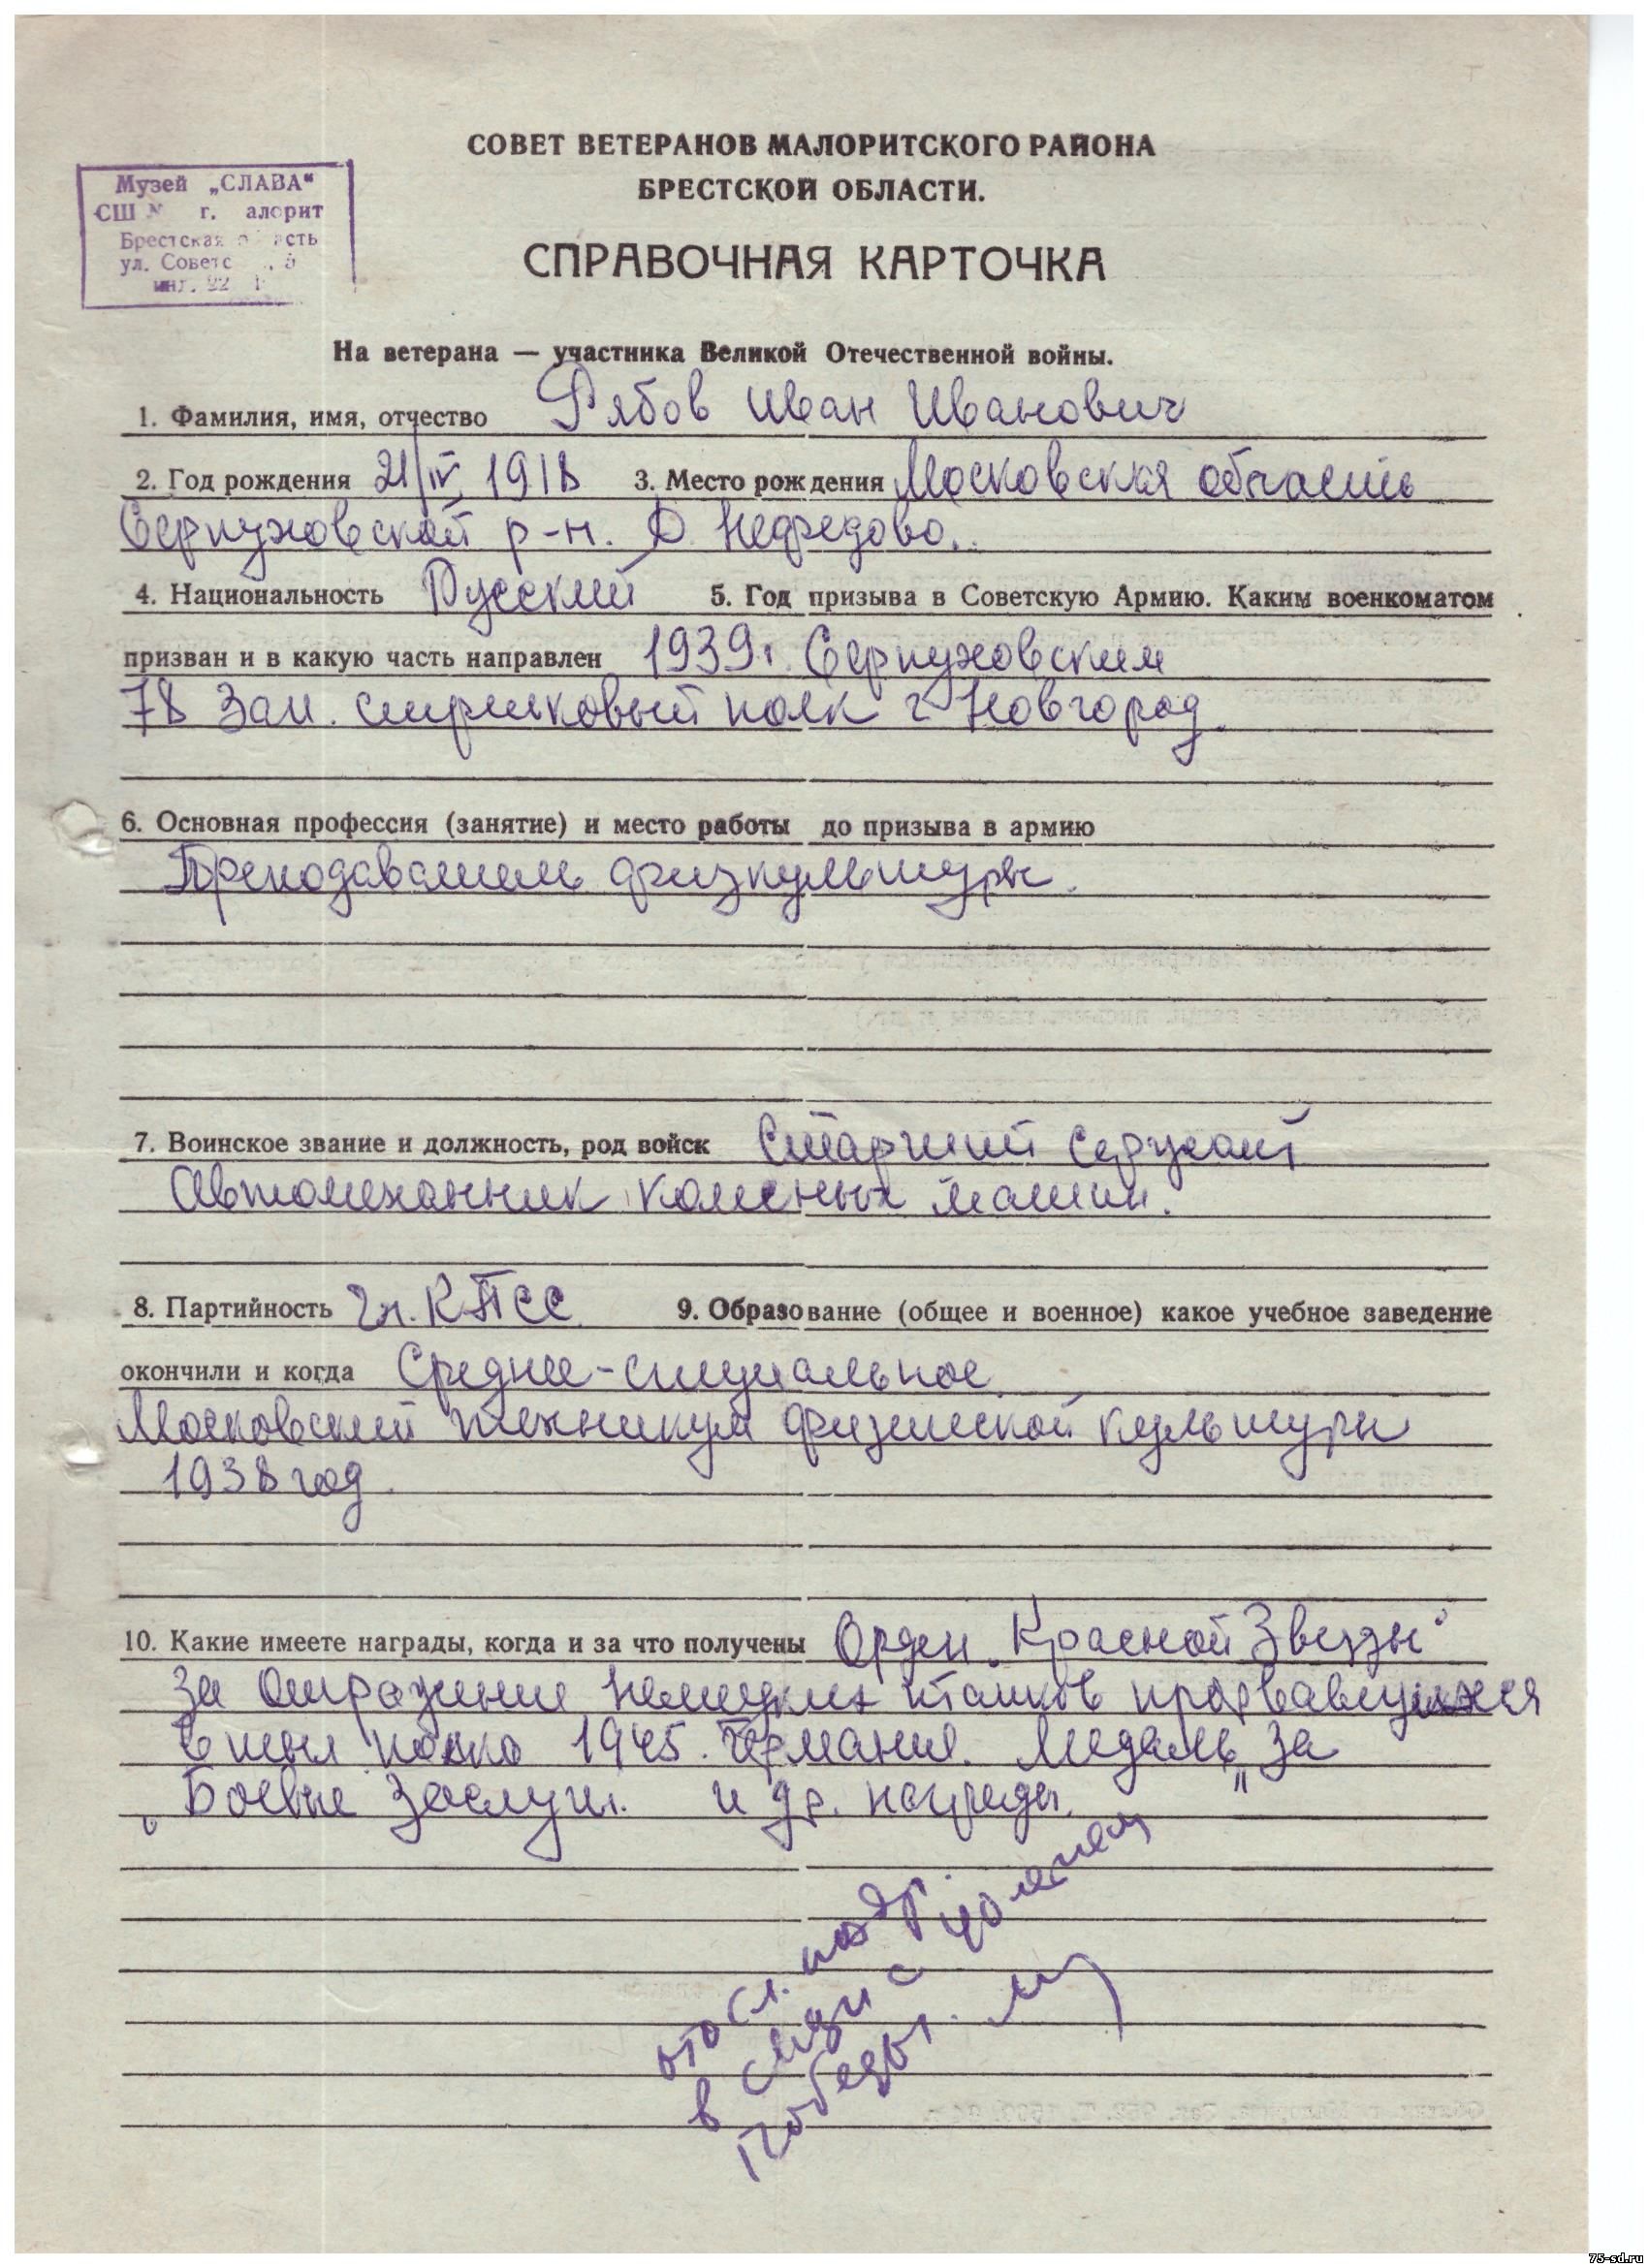 СОВЕТ ВЕТЕРАНОВ МАЛОРИТСКОГО РАЙОНА
БРЕСТСКОЙ ОБЛАСТИ.
Музей „СЛАВА“
СШ г. алорит
Брестская асть
ул. Советс
инд. 22
СПРАВОЧНАЯ КАРТОЧКА
На ветерана — участника Великой Отечественной войны.
1. Фамилия, имя, отчество Рябов Иван Иванович
2. Год рождения 21/IV 1918 3. Место рождения Московская область
Серпуховской р-н. Д. Нефедово.
4. Национальность Русский 5. Год призыва в Советскую Армию. Каким военкоматом
призван и в какую часть направлен 1939г. Серпуховским
78 Зап. стрелковый полк г Новгород.
6. Основная профессия (занятие) и место работы до призыва в армию
Преподаватель физкультуры.
7. Воинское звание и должность, род войск Старший сержант
Автомеханник колесных машин.
8. Партийность Чл. КПСС 9. Образование (общее и военное) какое учебное заведение
окончили и когда Среднее-специальное
Московский техникум физической культуры
1938 год.
10. Какие имеете награды, когда и за что получены Орден „Красной Звезды“
За отражение немецких танков прорвавшихся
в тыл полка 1945. Германия. Медаль „За
Боевые заслуги. и др. награды.
отосл. поздр.
в связи с 40 летием
Победы.
75-sd.ru